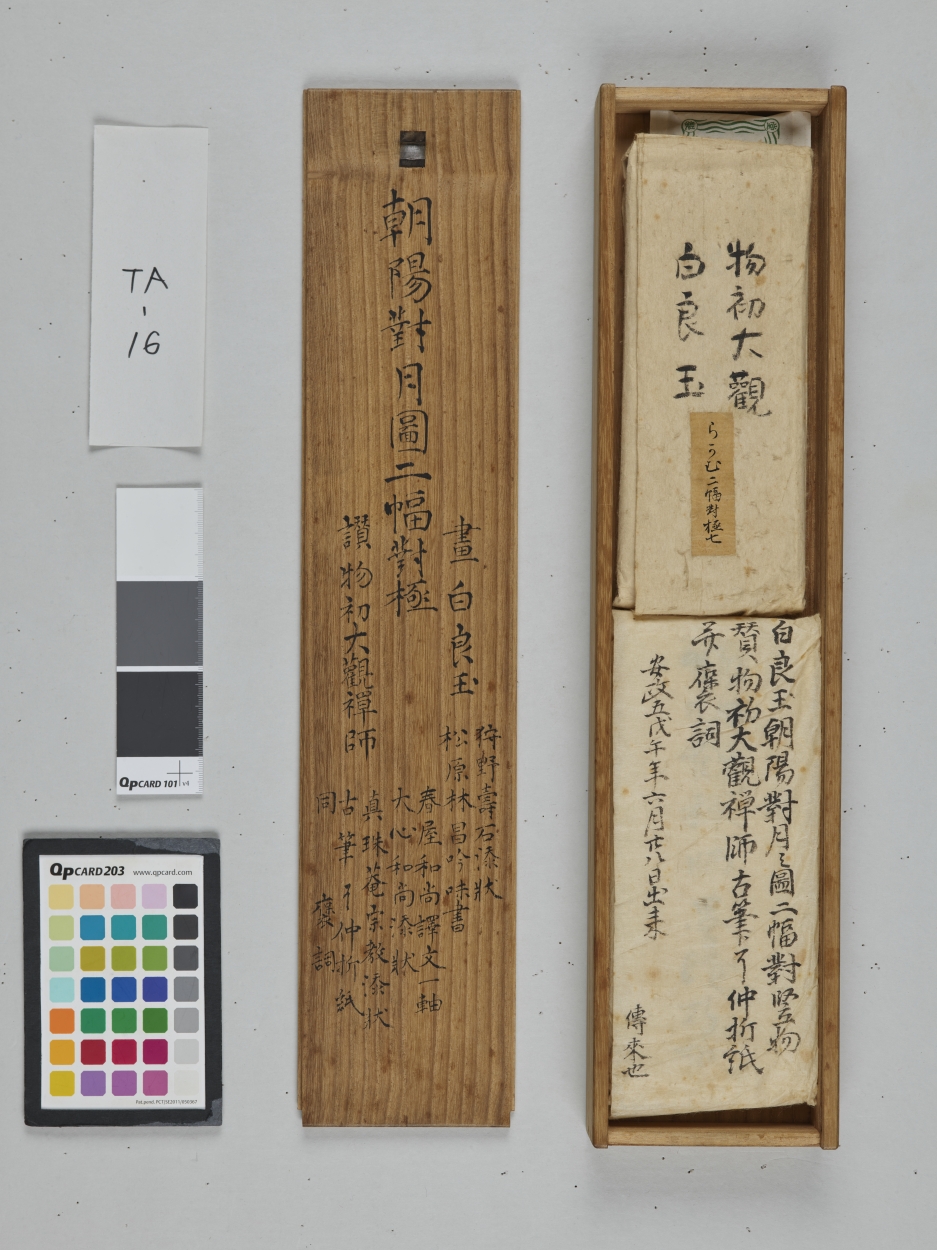 TA
-
16
QpCARD 101 v4
QpCARD 203 www.qpcard.com
朝陽對月圖二幅對極
畫白良玉
讃物初大觀禅師
狩野壽石添状
松原林昌吟味書
春屋和尚譯文一軸
大心和尚添状
真珠菴宗毅添状
古筆了仲折紙
同褒詞
物初大觀
白良玉
らうむ二幅對極七
白良玉朝陽對月之圖二幅對竪物
賛物初大觀禅師古筆了仲折紙
并褒詞
安政五戊午年六月廿八日出来
傳來也